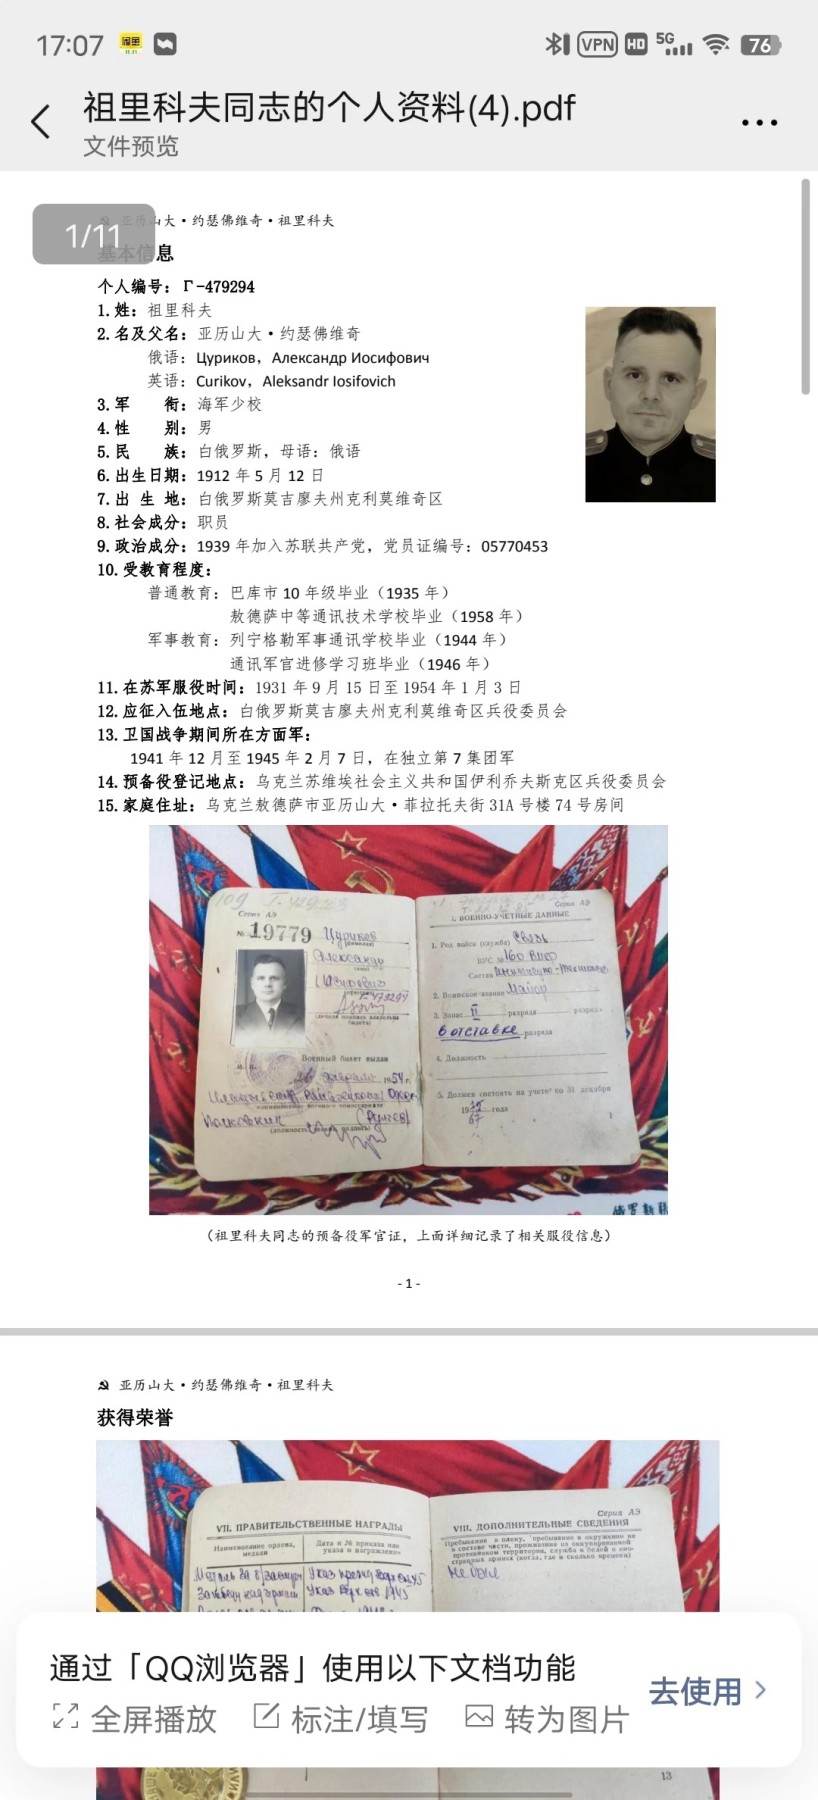 17:07
VPN
HD
5G
76
祖里科夫同志的个人资料(4).pdf
文件预览
1/11
亚历山大·约瑟佛维奇·祖里科夫
基本信息
个人编号：Г-479294
1.姓：祖里科夫
2.名及父名：亚历山大·约瑟佛维奇
俄语：Цуриков，Александр Иосифович
英语：Curikov，Aleksandr Iosifovich
3.军 衔：海军少校
4.性 别：男
5.民 族：白俄罗斯，母语：俄语
6.出生日期：1912 年 5 月 12 日
7.出 生 地：白俄罗斯莫吉廖夫州克利莫维奇区
8.社会成分：职员
9.政治成分：1939 年加入苏联共产党，党员证编号：05770453
10.受教育程度：
普通教育：巴库市 10 年级毕业（1935 年）
敖德萨中等通讯技术学校毕业（1958 年）
军事教育：列宁格勒军事通讯学校毕业（1944 年）
通讯军官进修学习班毕业（1946 年）
11.在苏军服役时间：1931 年 9 月 15 日至 1954 年 1 月 3 日
12.应征入伍地点：白俄罗斯莫吉廖夫州克利莫维奇区兵役委员会
13.卫国战争期间所在方面军：
1941 年 12 月至 1945 年 2 月 7 日，在独立第 7 集团军
14.预备役登记地点：乌克兰苏维埃社会主义共和国伊利乔夫斯克区兵役委员会
15.家庭住址：乌克兰敖德萨市亚历山大·菲拉托夫街 31A 号楼 74 号房间
Серия АЭ
№ 19779 Цуриков
Александр
Иосифович
Г-479294
Военный билет выдан
1954 г.
Серия АЭ
I. ВОЕННО-УЧЕТНЫЕ ДАННЫЕ
1. Род войск (служба) Связь
ВУС №
Состав
2. Воинское звание Майор
3. Запас II разряда
в отставке разряда
4. Должность
5. Должен состоять на учете по 31 декабря
года
（祖里科夫同志的预备役军官证，上面详细记录了相关服役信息）
- 1 -
亚历山大·约瑟佛维奇·祖里科夫
获得荣誉
VII. ПРАВИТЕЛЬСТВЕННЫЕ НАГРАДЫ
Наименование ордена, медали
Дата и № приказа или указа о награждении
Серия АЭ
VIII. ДОПОЛНИТЕЛЬНЫЕ СВЕДЕНИЯ
не был
通过「QQ浏览器」使用以下文档功能
去使用
全屏播放
标注/填写
转为图片
13